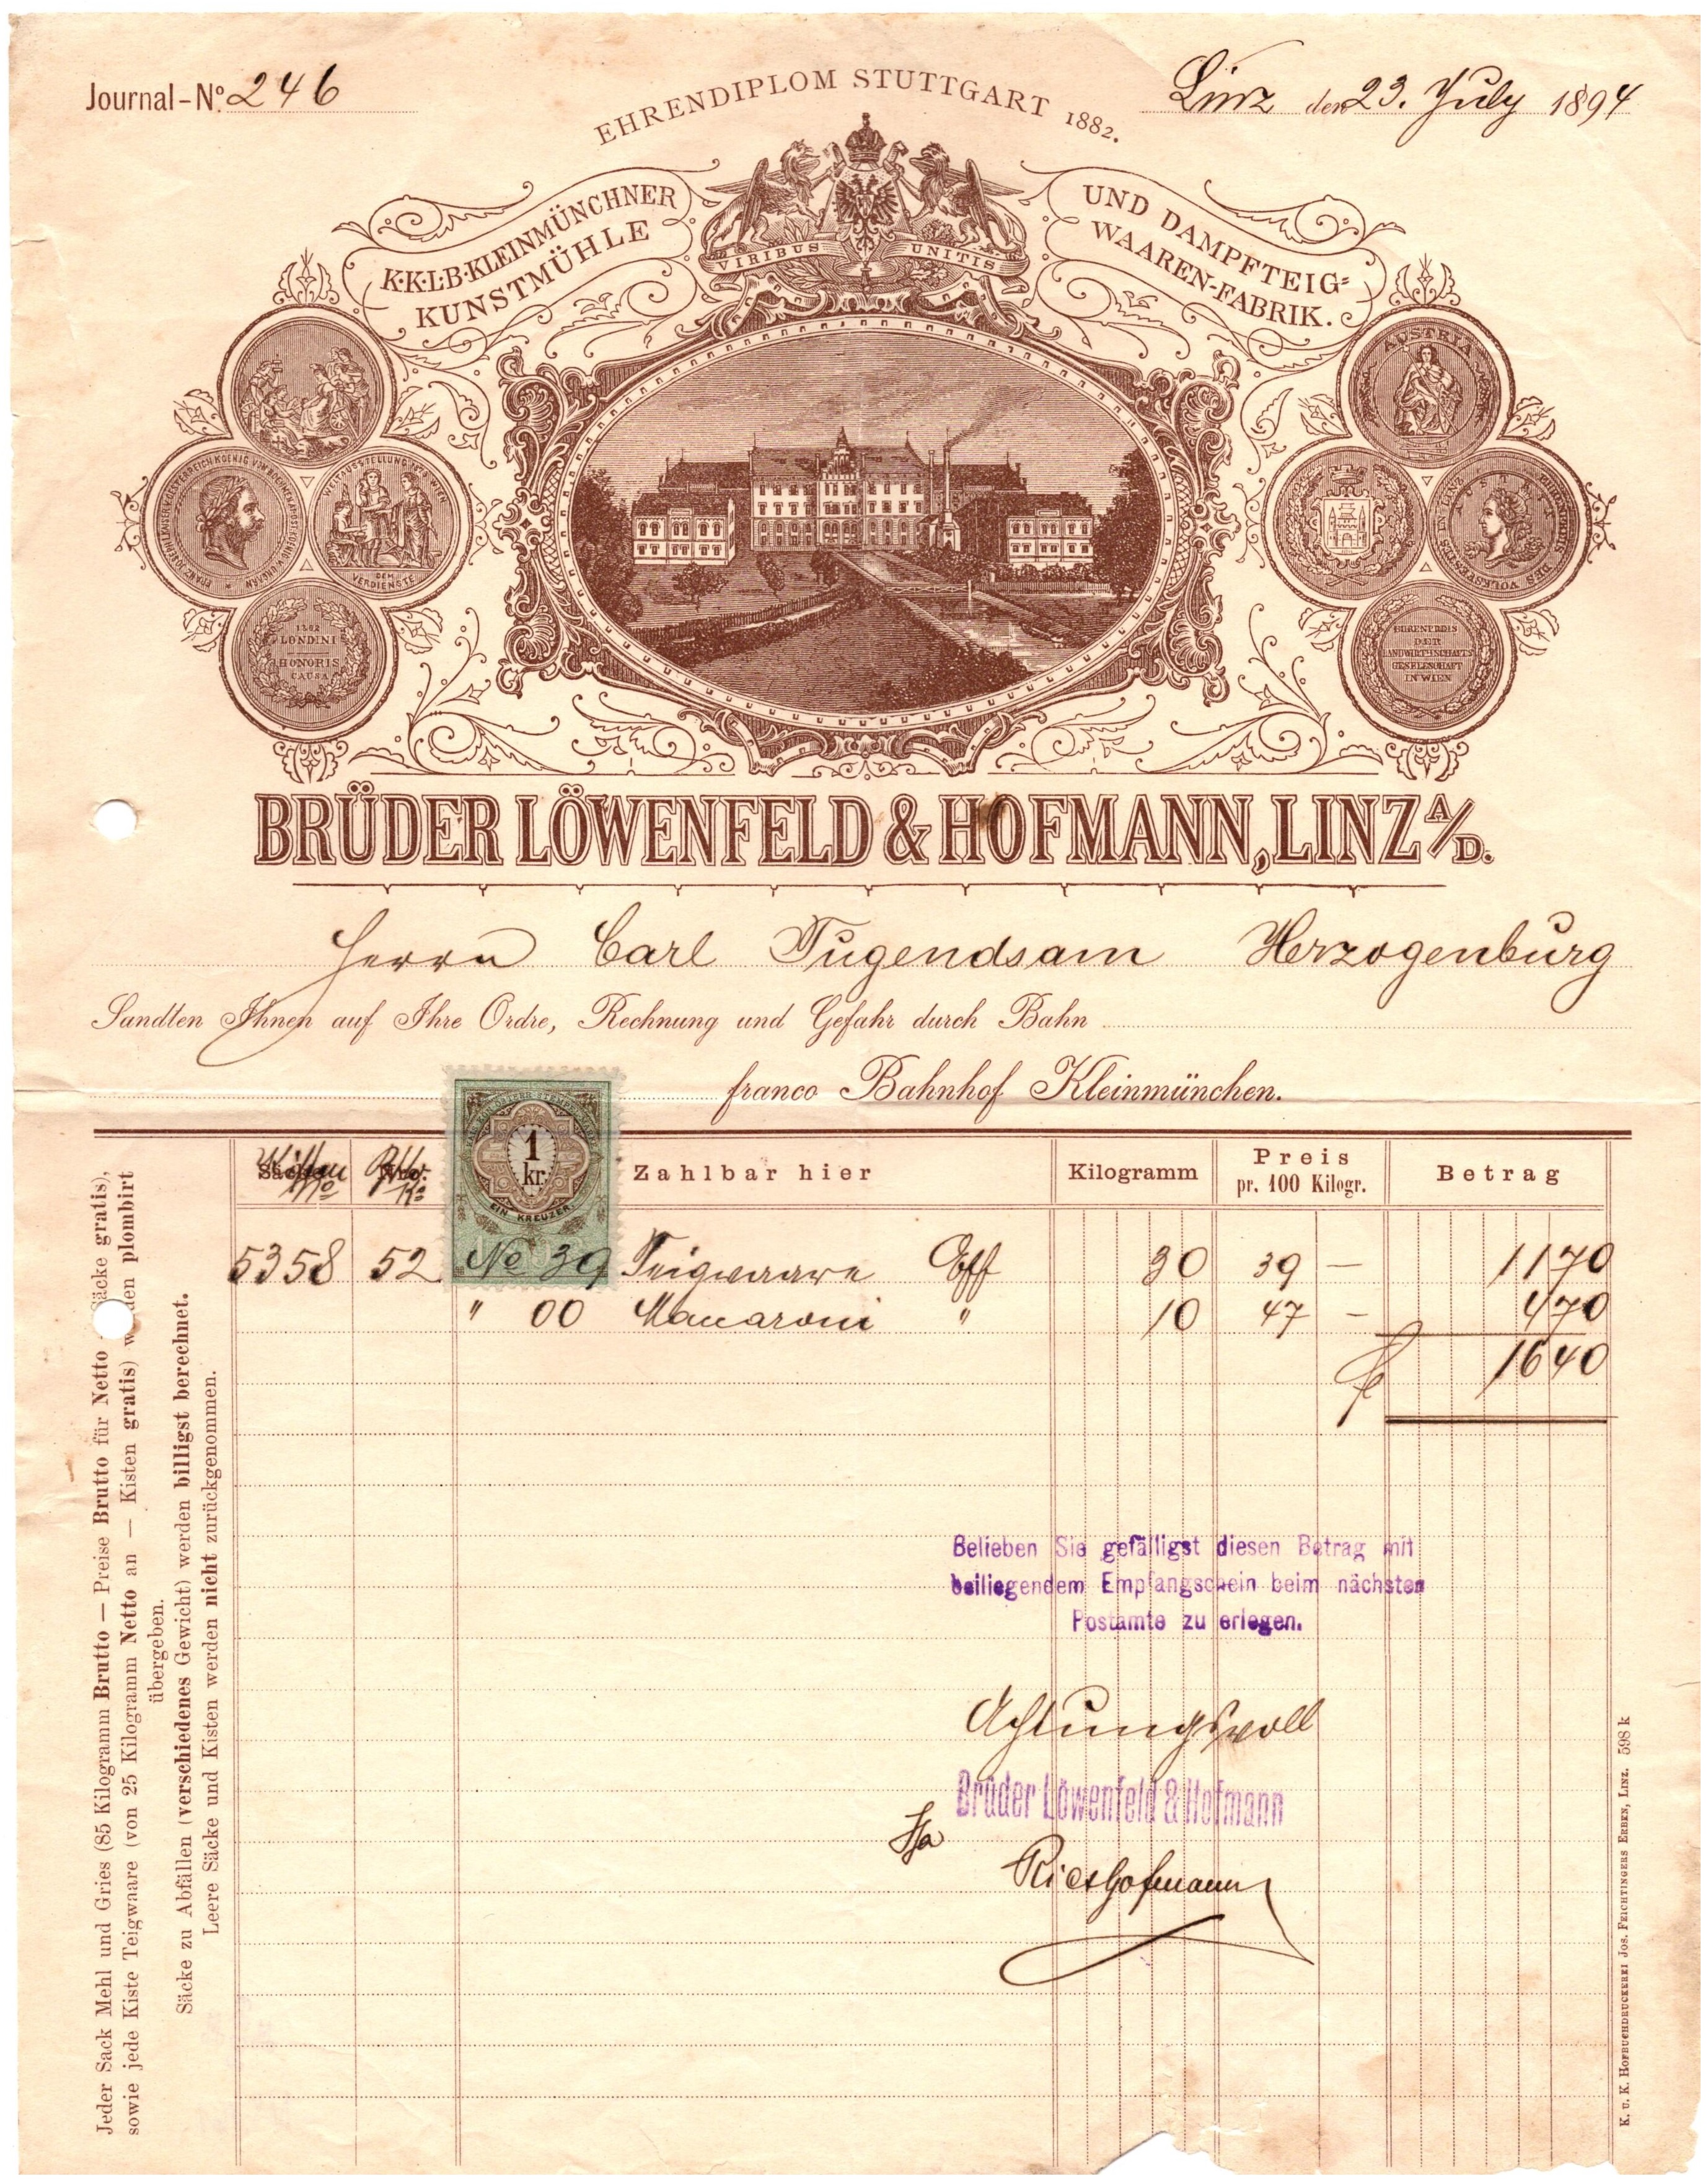 Journal-No. 246
EHRENDIPLOM STUTTGART 1882.
Linz den 23. July 1894
K.K.L.B. KLEINMÜNCHNER
KUNSTMÜHLE
UND DAMPFTEIG=
WAAREN-FABRIK.
VIRIBUS UNITIS
WELTAUSSTELLUNG 1873 WIEN
DEM VERDIENSTE
1862
LONDINI
HONORIS
CAUSA
AUSTRIA
EHRENPREIS
DER
LANDWIRTHSCHAFTS
GESELLSCHAFT
IN WIEN
BRÜDER LÖWENFELD & HOFMANN, LINZ A/D.
Herrn Carl Tugendsam Herzogenburg
Sandten Ihnen auf Ihre Ordre, Rechnung und Gefahr durch Bahn
franco Bahnhof Kleinmünchen.
1
kr.
EIN KREUZER
Zahlbar hier Kilogramm Preis pr. 100 Kilogr. Betrag
5358 52 No 39 Teigwaare Eff 30 39 — 11 70
" 00 Macaroni " 10 47 — 4 70
f 16 40
Belieben Sie gefälligst diesen Betrag mit
beiliegendem Empfangschein beim nächsten
Postamte zu erlegen.
Achtungsvoll
Brüder Löwenfeld & Hofmann
Jeder Sack Mehl und Gries (85 Kilogramm Brutto — Preise Brutto für Netto — Säcke gratis),
sowie jede Kiste Teigwaare (von 25 Kilogramm Netto an — Kisten gratis) werden plombirt
übergeben.
Säcke zu Abfällen (verschiedenes Gewicht) werden billigst berechnet.
Leere Säcke und Kisten werden nicht zurückgenommen.
K. u. K. HOFBUCHDRUCKEREI JOS. FEICHTINGERS ERBEN, LINZ. 598 k